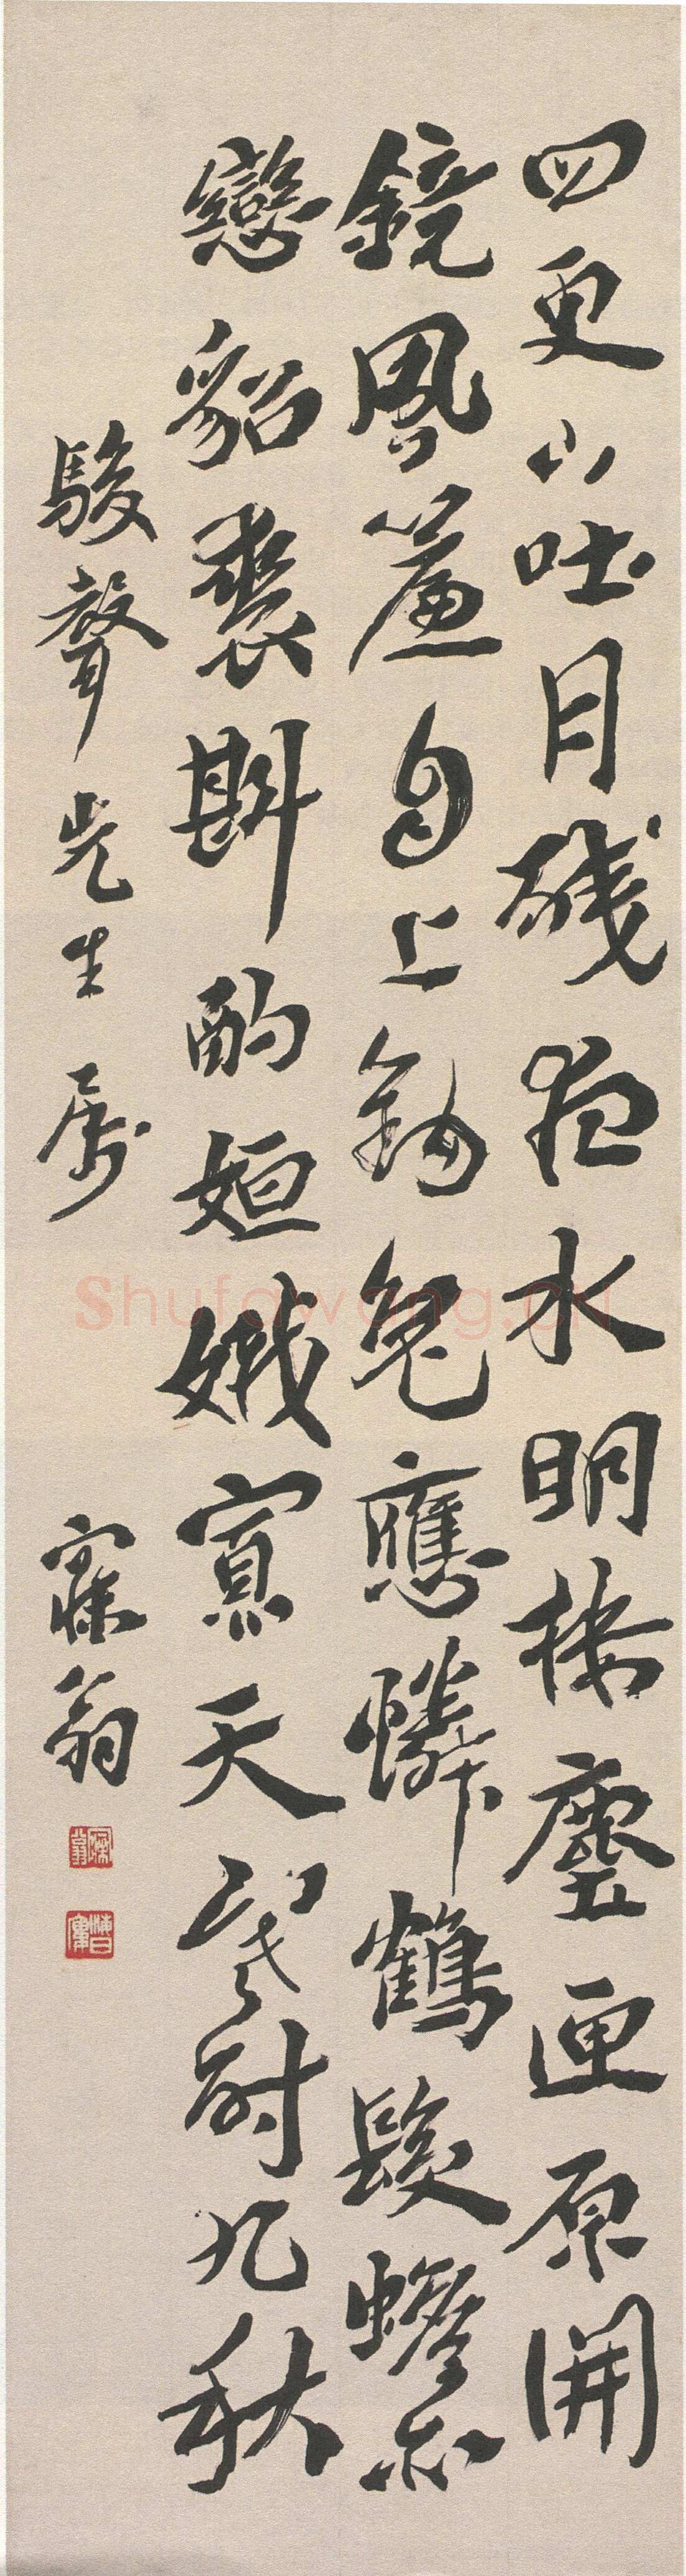 四更山吐月殘夜水明樓塵匣原開
鏡風簾自上鈎兔應憐鶴髮蟾亦
戀貂裘斟酌姮娥寡天寒耐九秋
駿聲先生屬
寐翁
Shufawang.cn